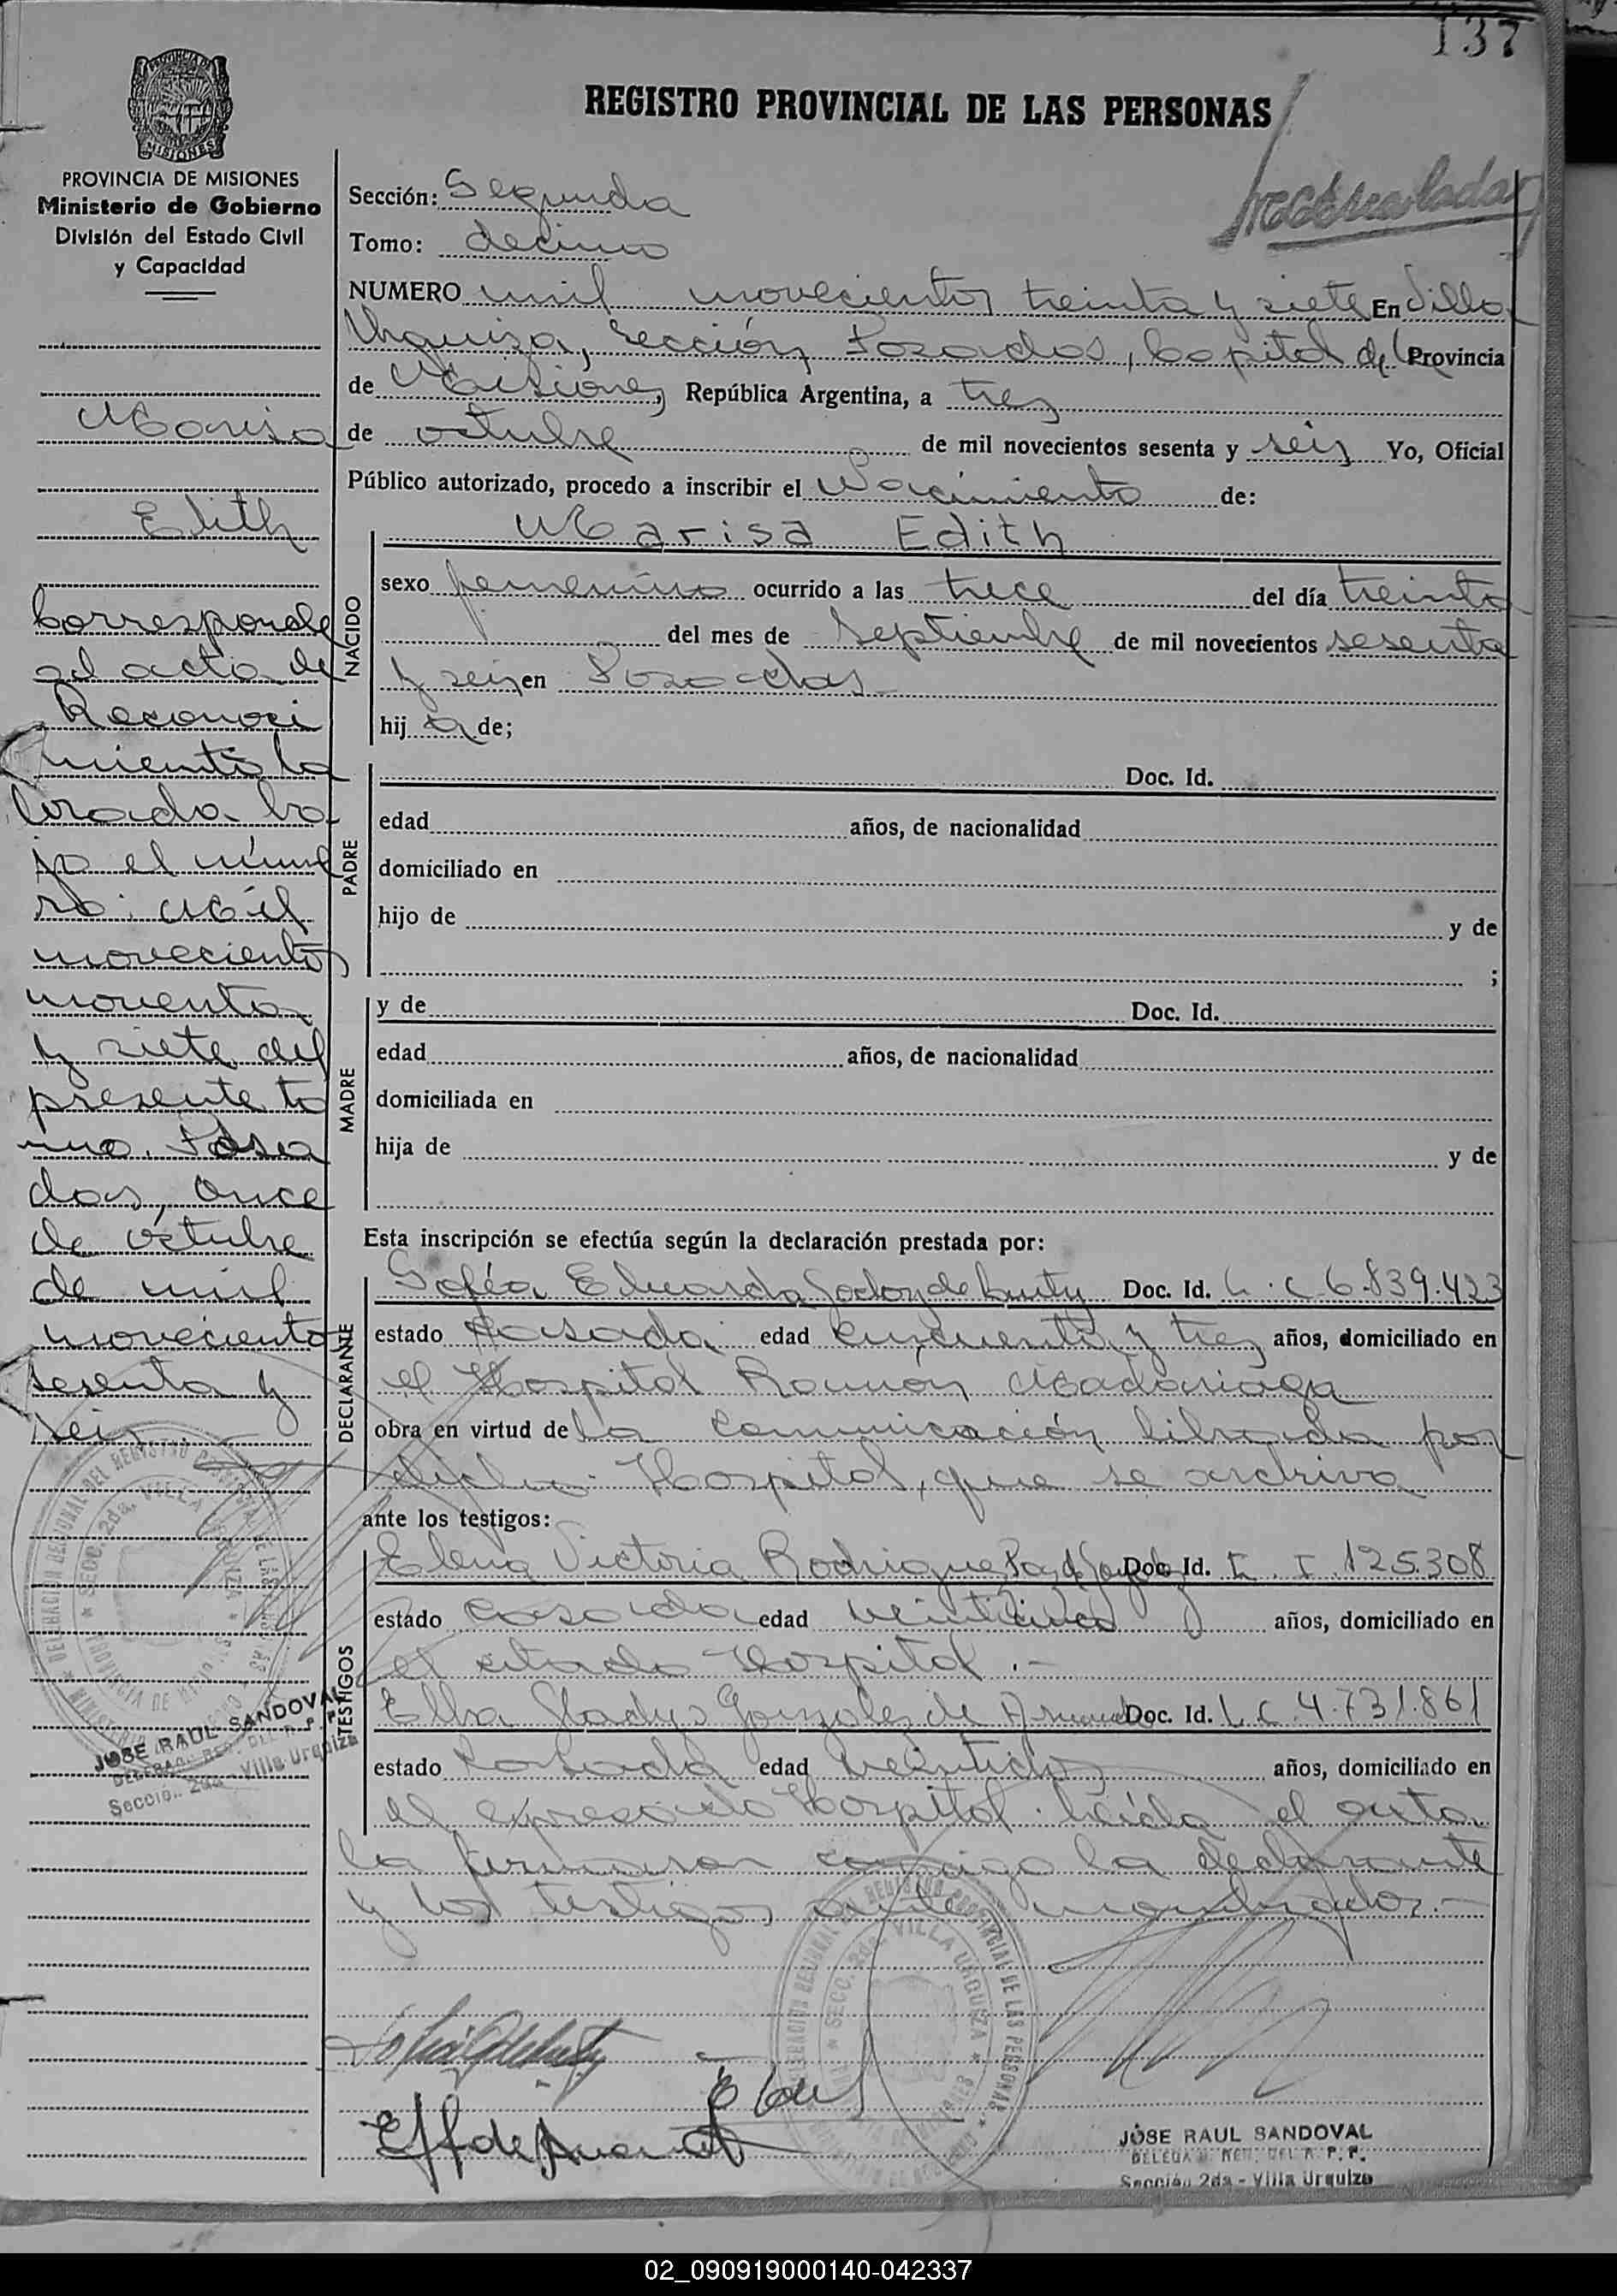 137
REGISTRO PROVINCIAL DE LAS PERSONAS
MISIONES
PROVINCIA DE MISIONES
Ministerio de Gobierno
División del Estado Civil
y Capacidad
Marisa
Edith
Corresponde
al acta de
Reconoci
miento la
brada ba
jo el núme
ro: Mil
novecientos
noventa
y siete del
presente to
mo. Posa
das, once
de octubre
de mil
novecientos
sesenta y
seis
JOSE RAUL SANDOVAL
Sección 2da - Villa Urquiza
Sección: Segunda
Tomo: decimo
NUMERO mil novecientos treinta y siete En Villa
Urquiza, sección Posadas, Capital de la Provincia
de Misiones, República Argentina, a tres
de octubre de mil novecientos sesenta y seis Yo, Oficial
Público autorizado, procedo a inscribir el Nacimiento de:
Marisa Edith
NACIDO
sexo femenino ocurrido a las trece del día treinta
del mes de Septiembre de mil novecientos sesenta
y seis en Posadas
hija de;
PADRE
Doc. Id.
edad años, de nacionalidad
domiciliado en
hijo de y de
;
MADRE
y de Doc. Id.
edad años, de nacionalidad
domiciliada en
hija de y de
Esta inscripción se efectúa según la declaración prestada por:
DECLARANTE
Sofía Eduarda Godoy de Doc. Id. L.C 6.839.423
estado Casada edad cincuenta y tres años, domiciliado en
el Hospital Ramón Madariaga
obra en virtud de la comunicación librada por
dicho Hospital, que se archiva
ante los testigos:
TESTIGOS
Elena Victoria Rodrigues Doc. Id. 125.308
estado casada edad veinticinco años, domiciliado en
el citado Hospital.-
Elba Gladys Gonzales de Doc. Id. L C 4.731.861
estado Casada edad veintidos años, domiciliado en
el expresado Hospital. Leída el acta
la firmaron conmigo la declarante
y los testigos ante nombrados.-
JOSE RAUL SANDOVAL
DELEGADO REG. DEL R. P. P.
Sección 2da - Villa Urquiza
02_090919000140-042337